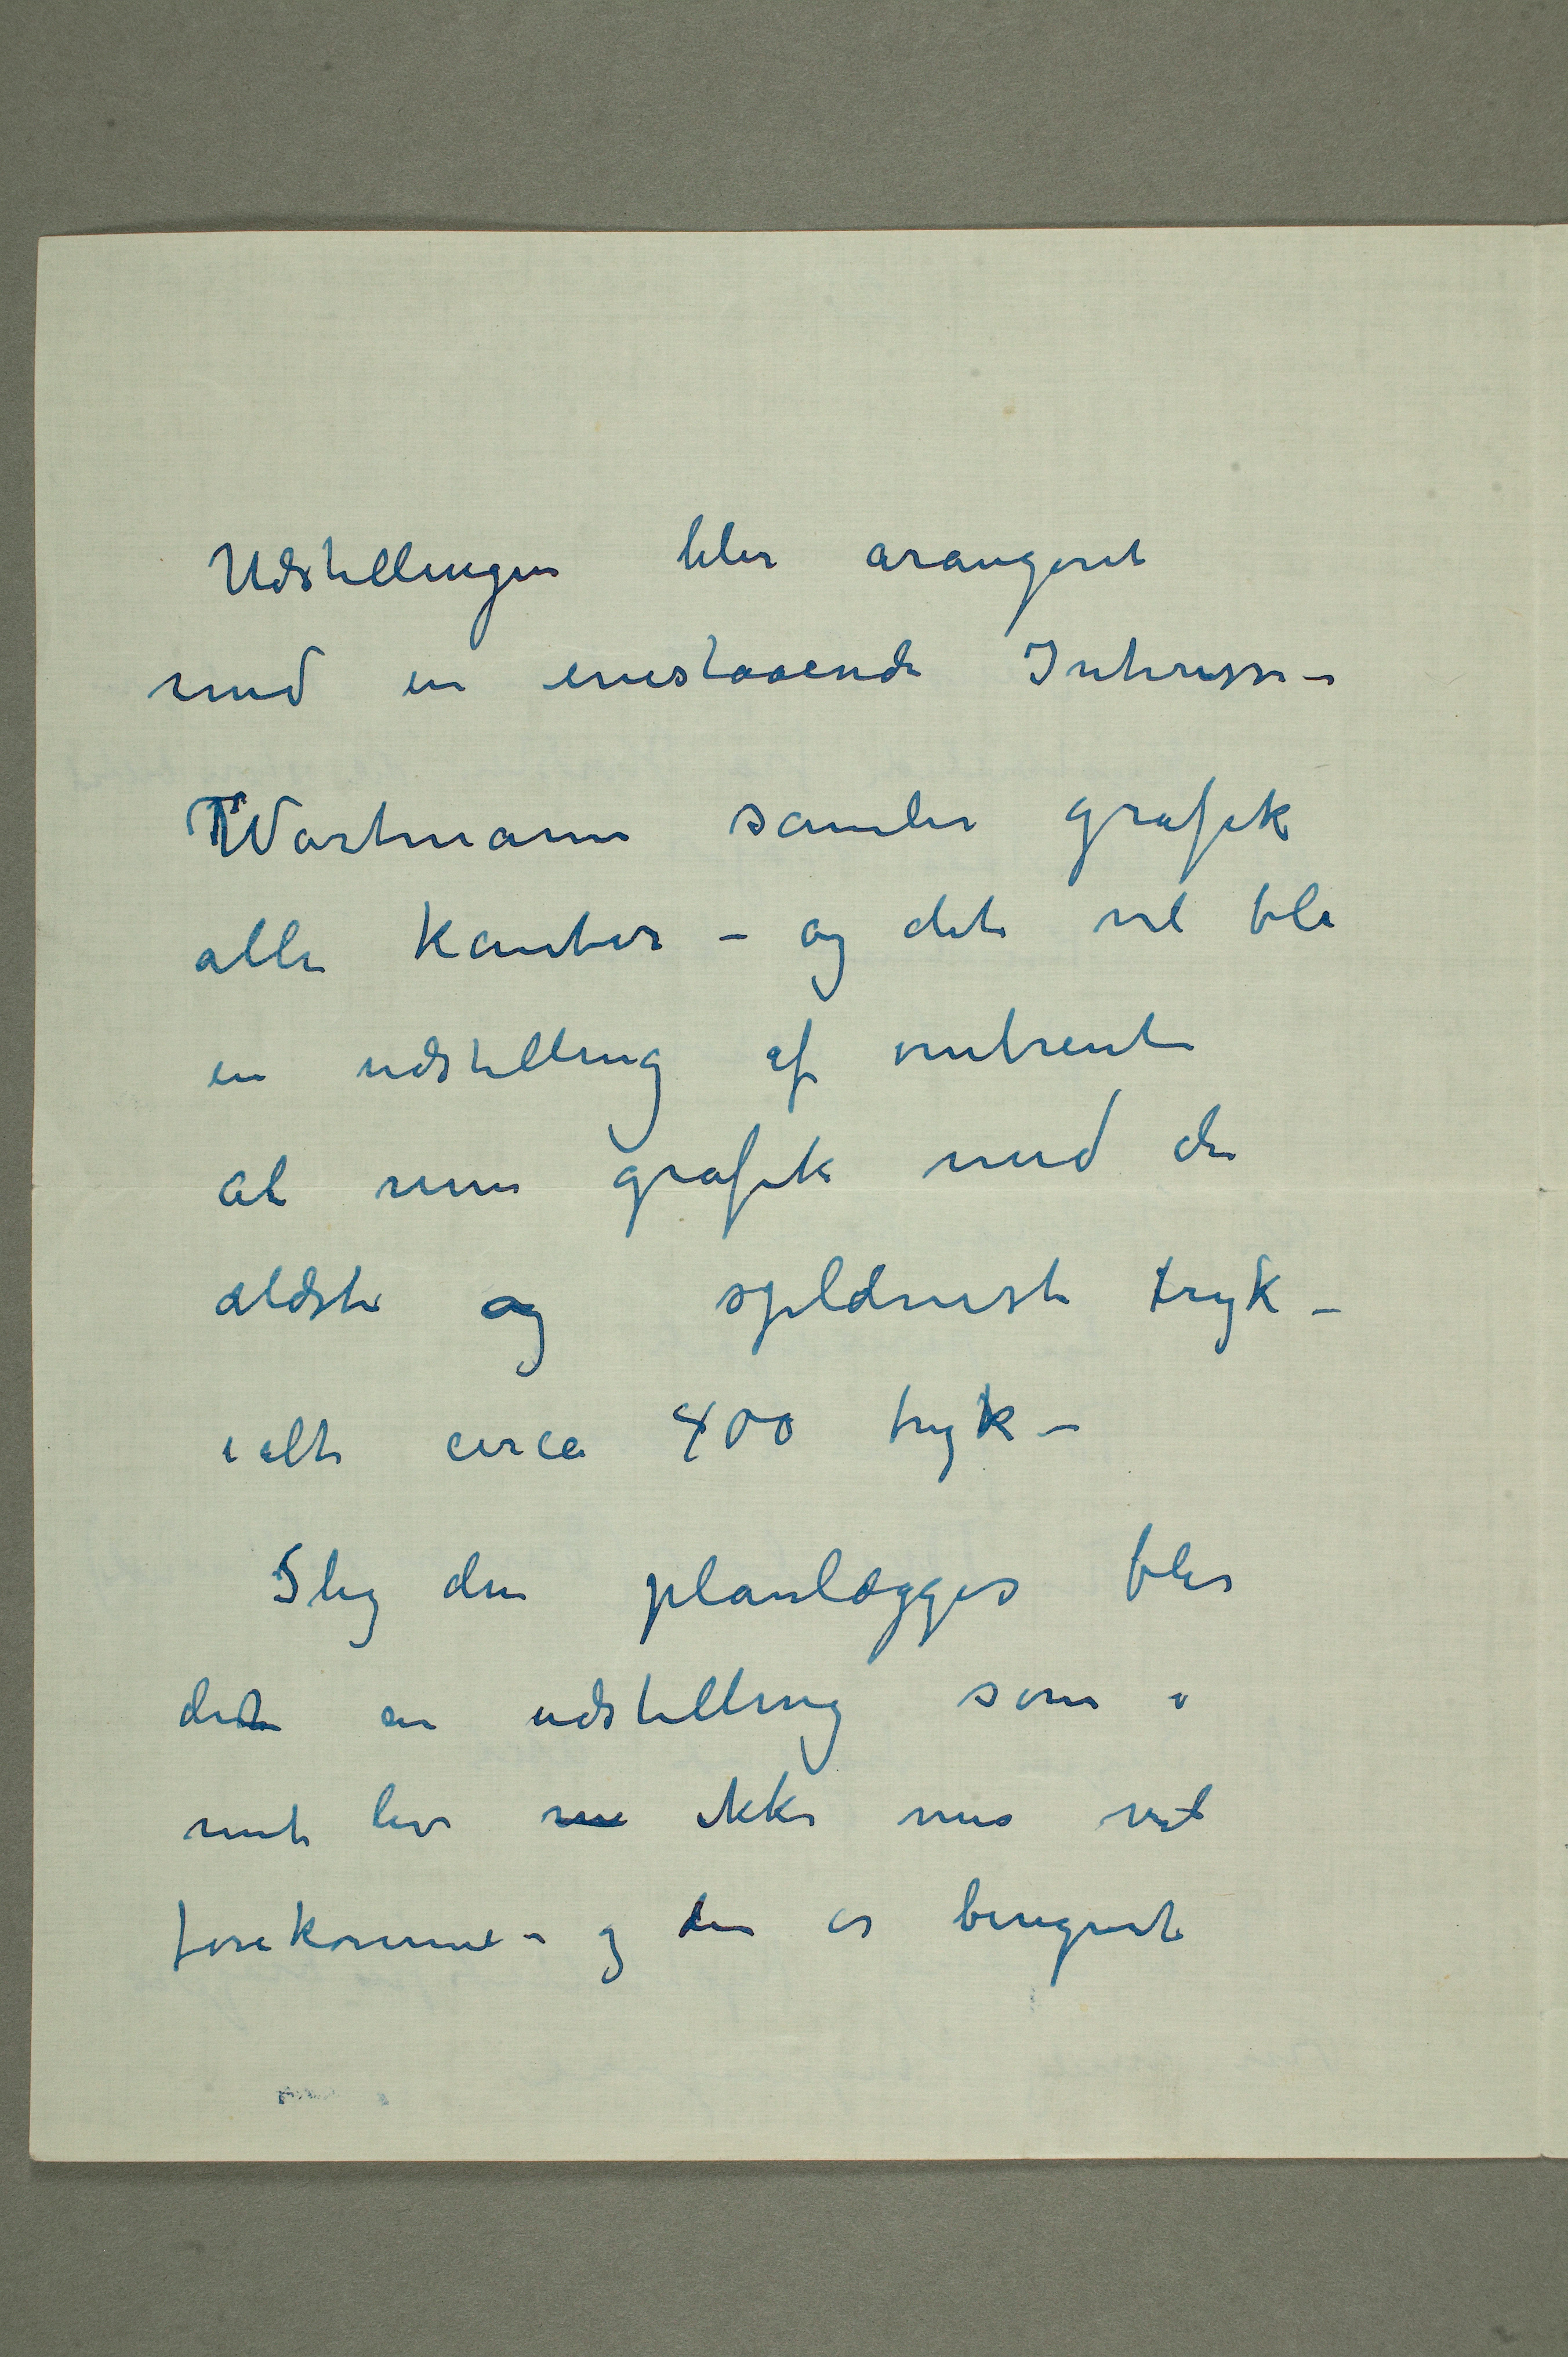 Udstillingen blir arangeret
med en enestaaende Interesse –
Wartmann samler grafik
alle kanter – og det vil bli
en udstilling af omtrent
al min grafik med de
ældste og sjeldneste tryk –
ialt circa 400 tryk –
Slig den planlægges blir
dette en udstilling som i
mit liv ikke mer vil
forekomme – og den er beregnet